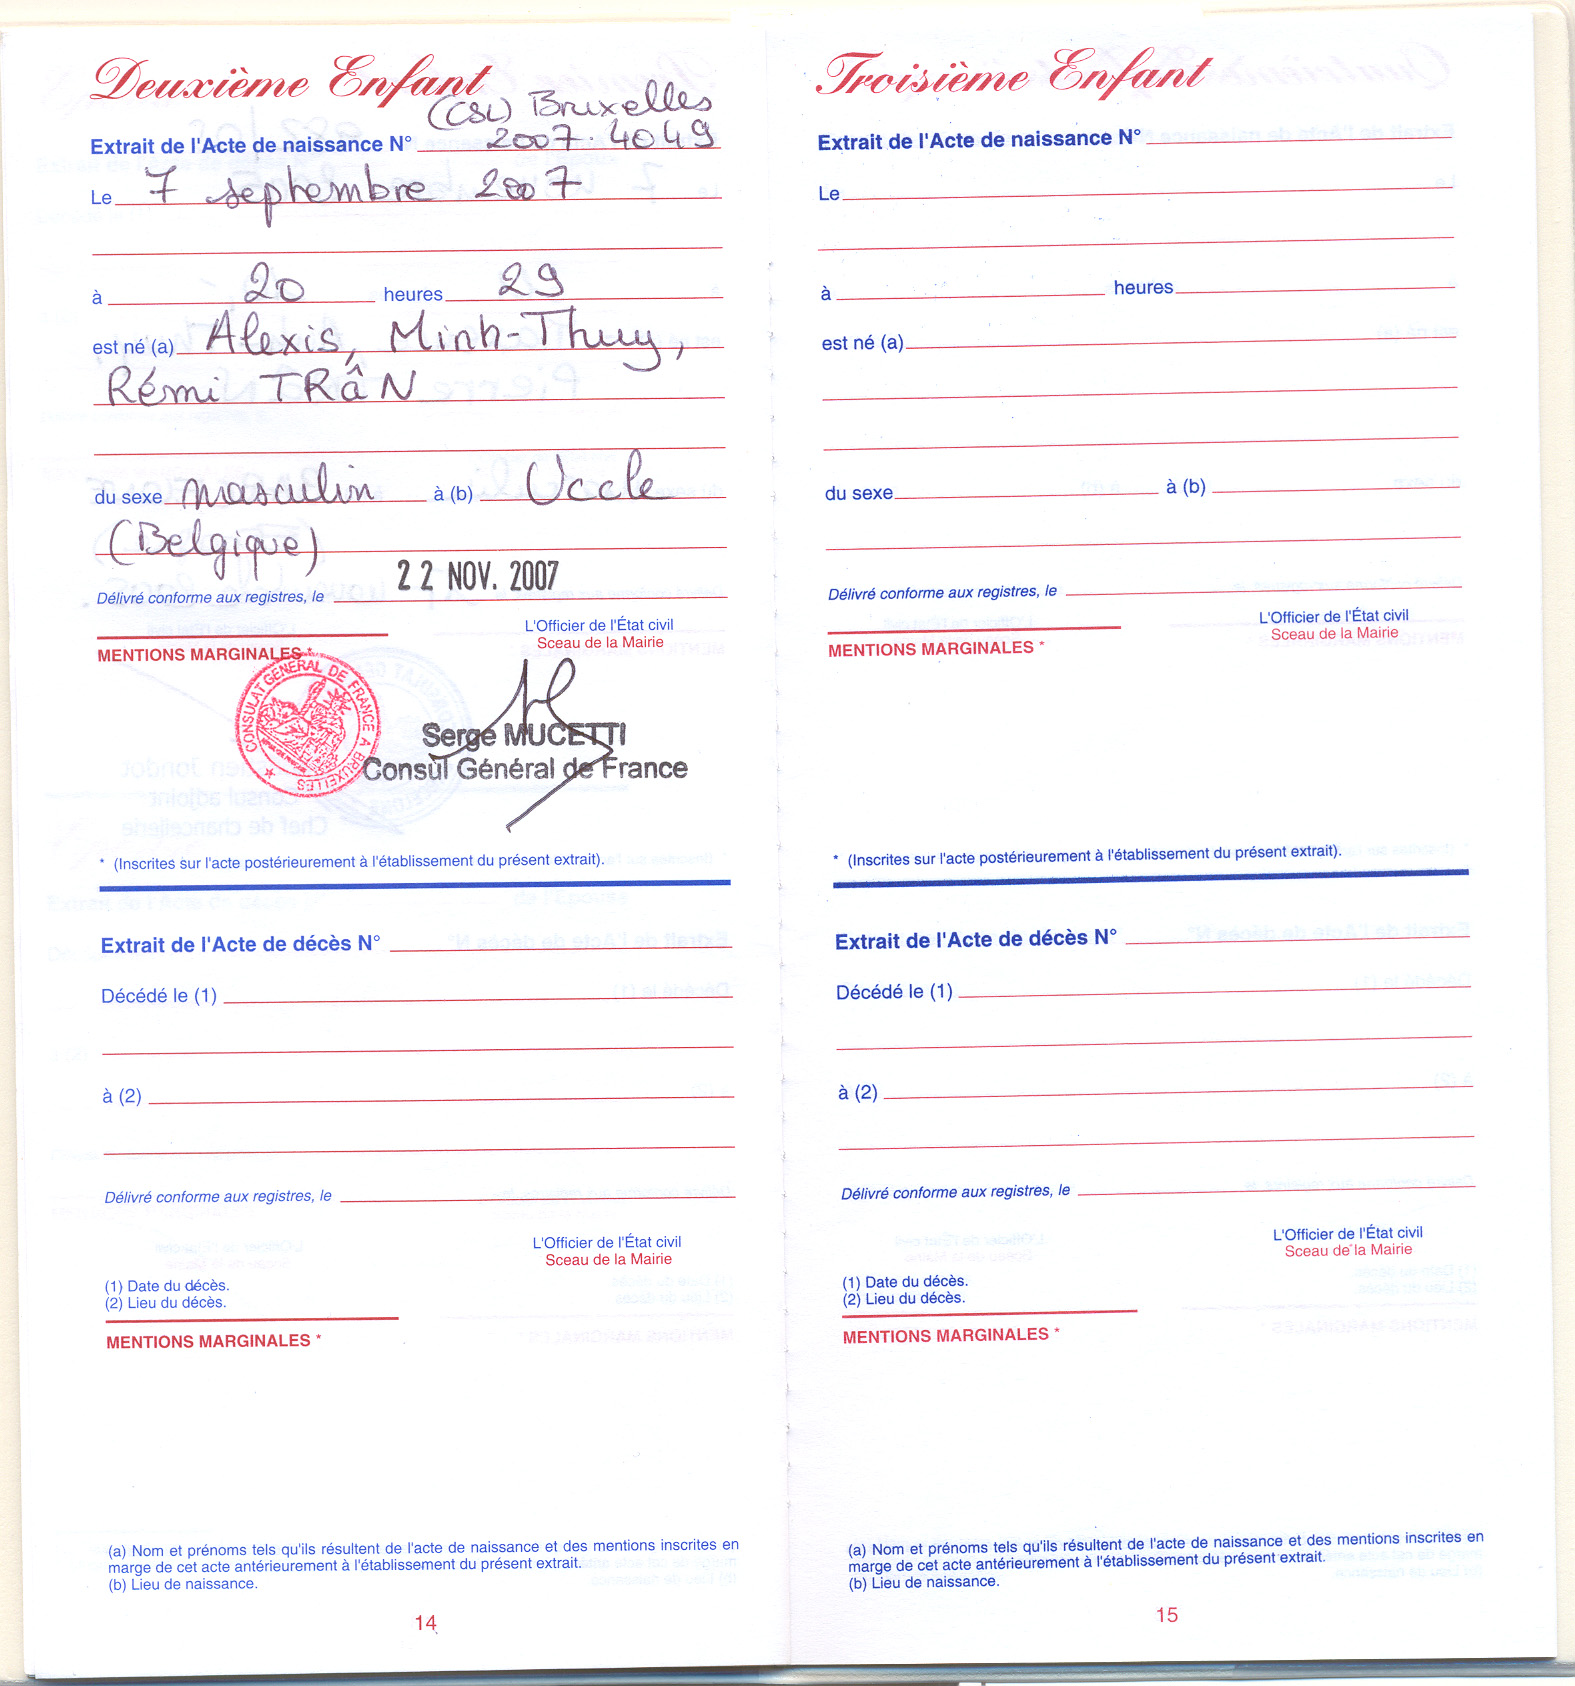 Deuxième Enfant
(CSL) Bruxelles
Extrait de l'Acte de naissance N° 2007.4049
Le 7 septembre 2007
à 20 heures 29
est né (a) Alexis, Minh-Thuy,
Rémi TRÂN
du sexe masculin à (b) Uccle
(Belgique)
22 NOV. 2007
Délivré conforme aux registres, le
L'Officier de l'État civil
Sceau de la Mairie
MENTIONS MARGINALES *
CONSULAT GÉNÉRAL DE FRANCE A BRUXELLES
Serge MUCETTI
Consul Général de France
* (Inscrites sur l'acte postérieurement à l'établissement du présent extrait).
Extrait de l'Acte de décès N°
Décédé le (1)
à (2)
Délivré conforme aux registres, le
L'Officier de l'État civil
Sceau de la Mairie
(1) Date du décès.
(2) Lieu du décès.
MENTIONS MARGINALES *
(a) Nom et prénoms tels qu'ils résultent de l'acte de naissance et des mentions inscrites en
marge de cet acte antérieurement à l'établissement du présent extrait.
(b) Lieu de naissance.
14
Troisième Enfant
Extrait de l'Acte de naissance N°
Le
à heures
est né (a)
du sexe à (b)
Délivré conforme aux registres, le
L'Officier de l'État civil
Sceau de la Mairie
MENTIONS MARGINALES *
* (Inscrites sur l'acte postérieurement à l'établissement du présent extrait).
Extrait de l'Acte de décès N°
Décédé le (1)
à (2)
Délivré conforme aux registres, le
L'Officier de l'État civil
Sceau de la Mairie
(1) Date du décès.
(2) Lieu du décès.
MENTIONS MARGINALES *
(a) Nom et prénoms tels qu'ils résultent de l'acte de naissance et des mentions inscrites en
marge de cet acte antérieurement à l'établissement du présent extrait.
(b) Lieu de naissance.
15